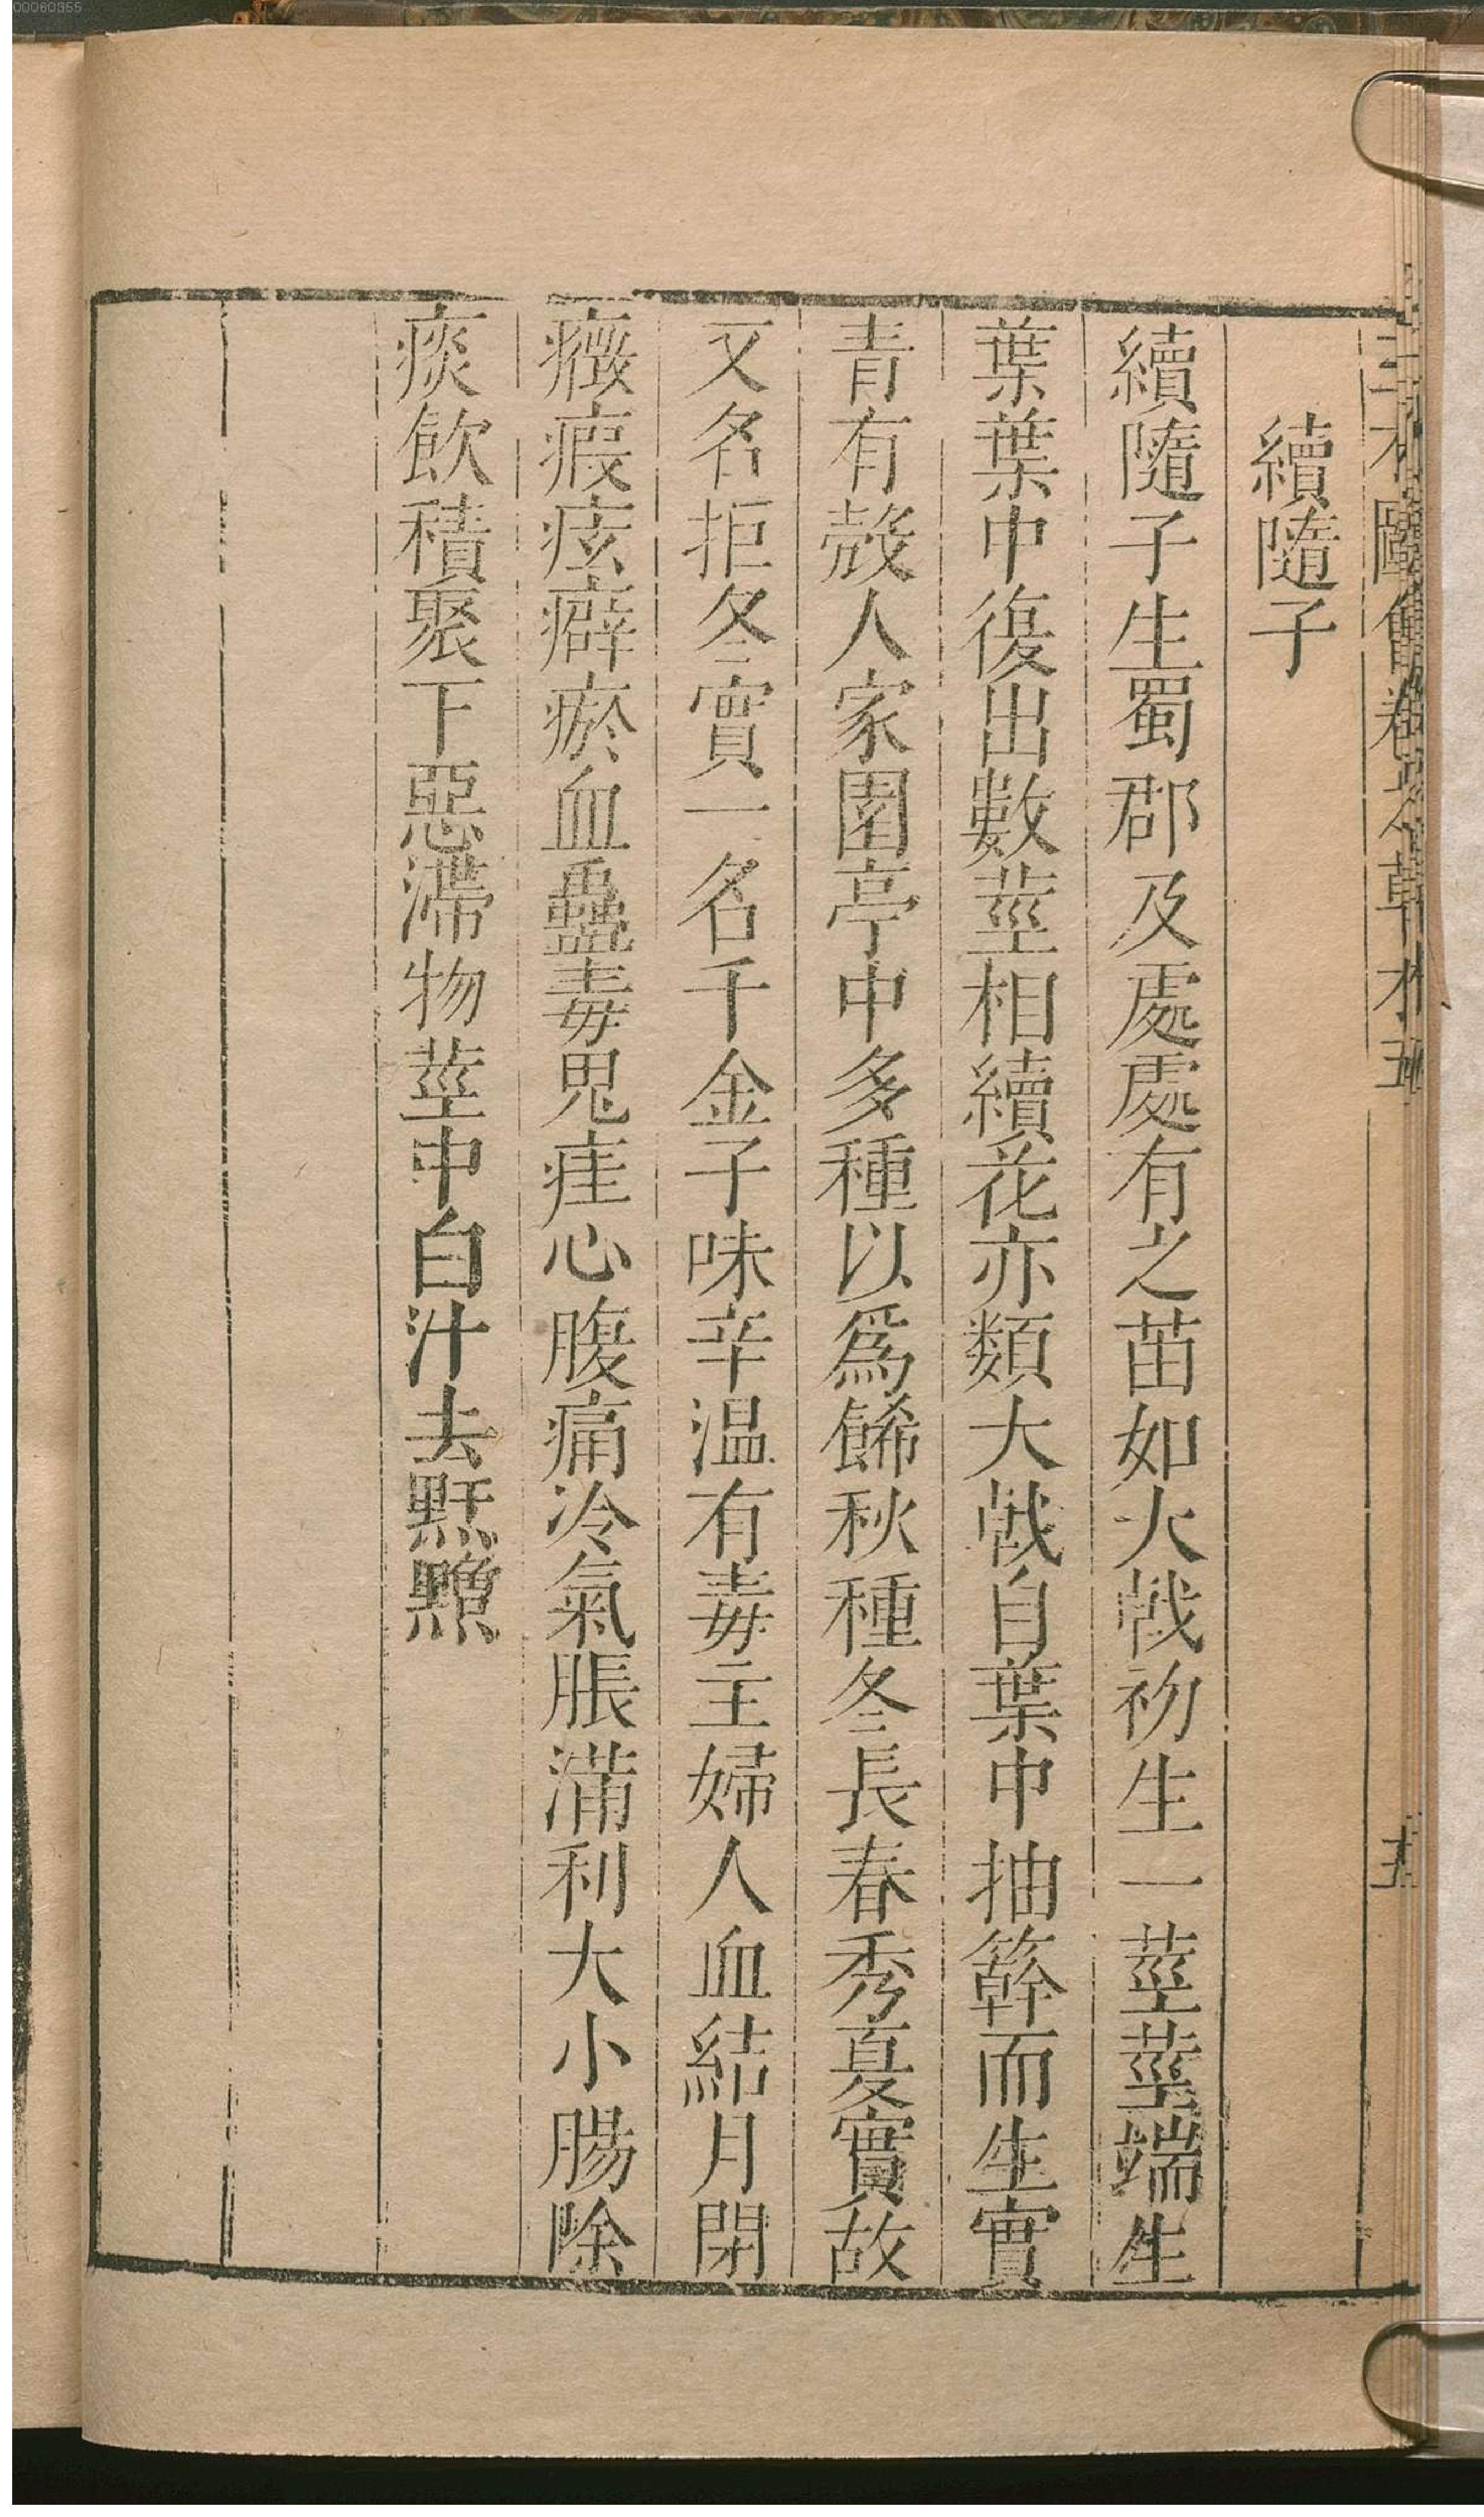 00060355
續隨子
續隨子生蜀郡及處處有之苗如大戟初生一莖莖端生
葉葉中復出數莖相續花亦類大戟自葉中抽簳而生實
青有殼人家園亭中多種以爲餙秋種冬長春秀夏實故
又名拒冬實一名千金子味辛温有毒主婦人血結月閉
癥瘕痃癖瘀血蠱毒鬼疰心腹痛冷氣脹滿利大小腸除
痰飲積聚下惡滯物莖中白汁去䵟䵳